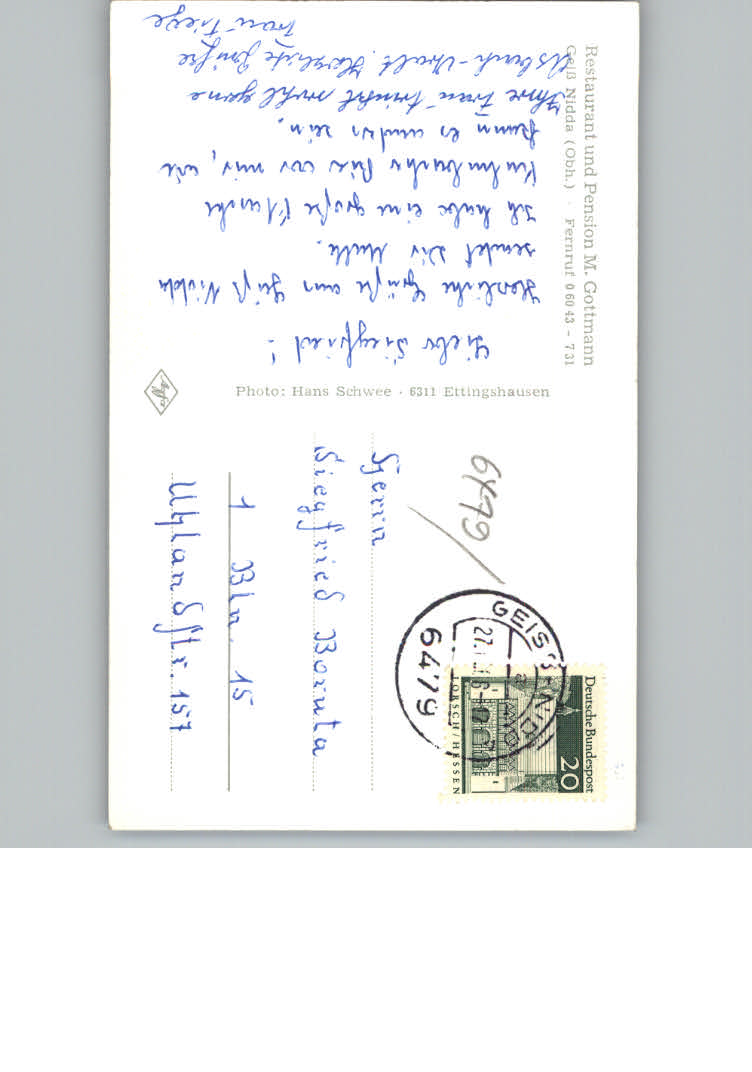 Restaurant und Pension M. Gottmann
Geiß Nidda (Obh.) · Fernruf 0 60 43 - 731
Lieber Siegfried!
Herzliche Grüße aus Geiß Nidda
sendet Dir Mutti.
Ich habe eine große Flasche
Kulmbacher Bier vor mir, wie
kann es anders sein.
Ihre Frau trinkt wohl gerne
Asbach-Uralt. Herzliche Grüße
Frau
Photo: Hans Schwee · 6311 Ettingshausen
Agfa
6479/
GEISS-NIDDA
27.
6479
Deutsche Bundespost
20
LORSCH/HESSEN
Herrn
Siegfried Boruta
1 Bln. 15
Uhlandstr. 157